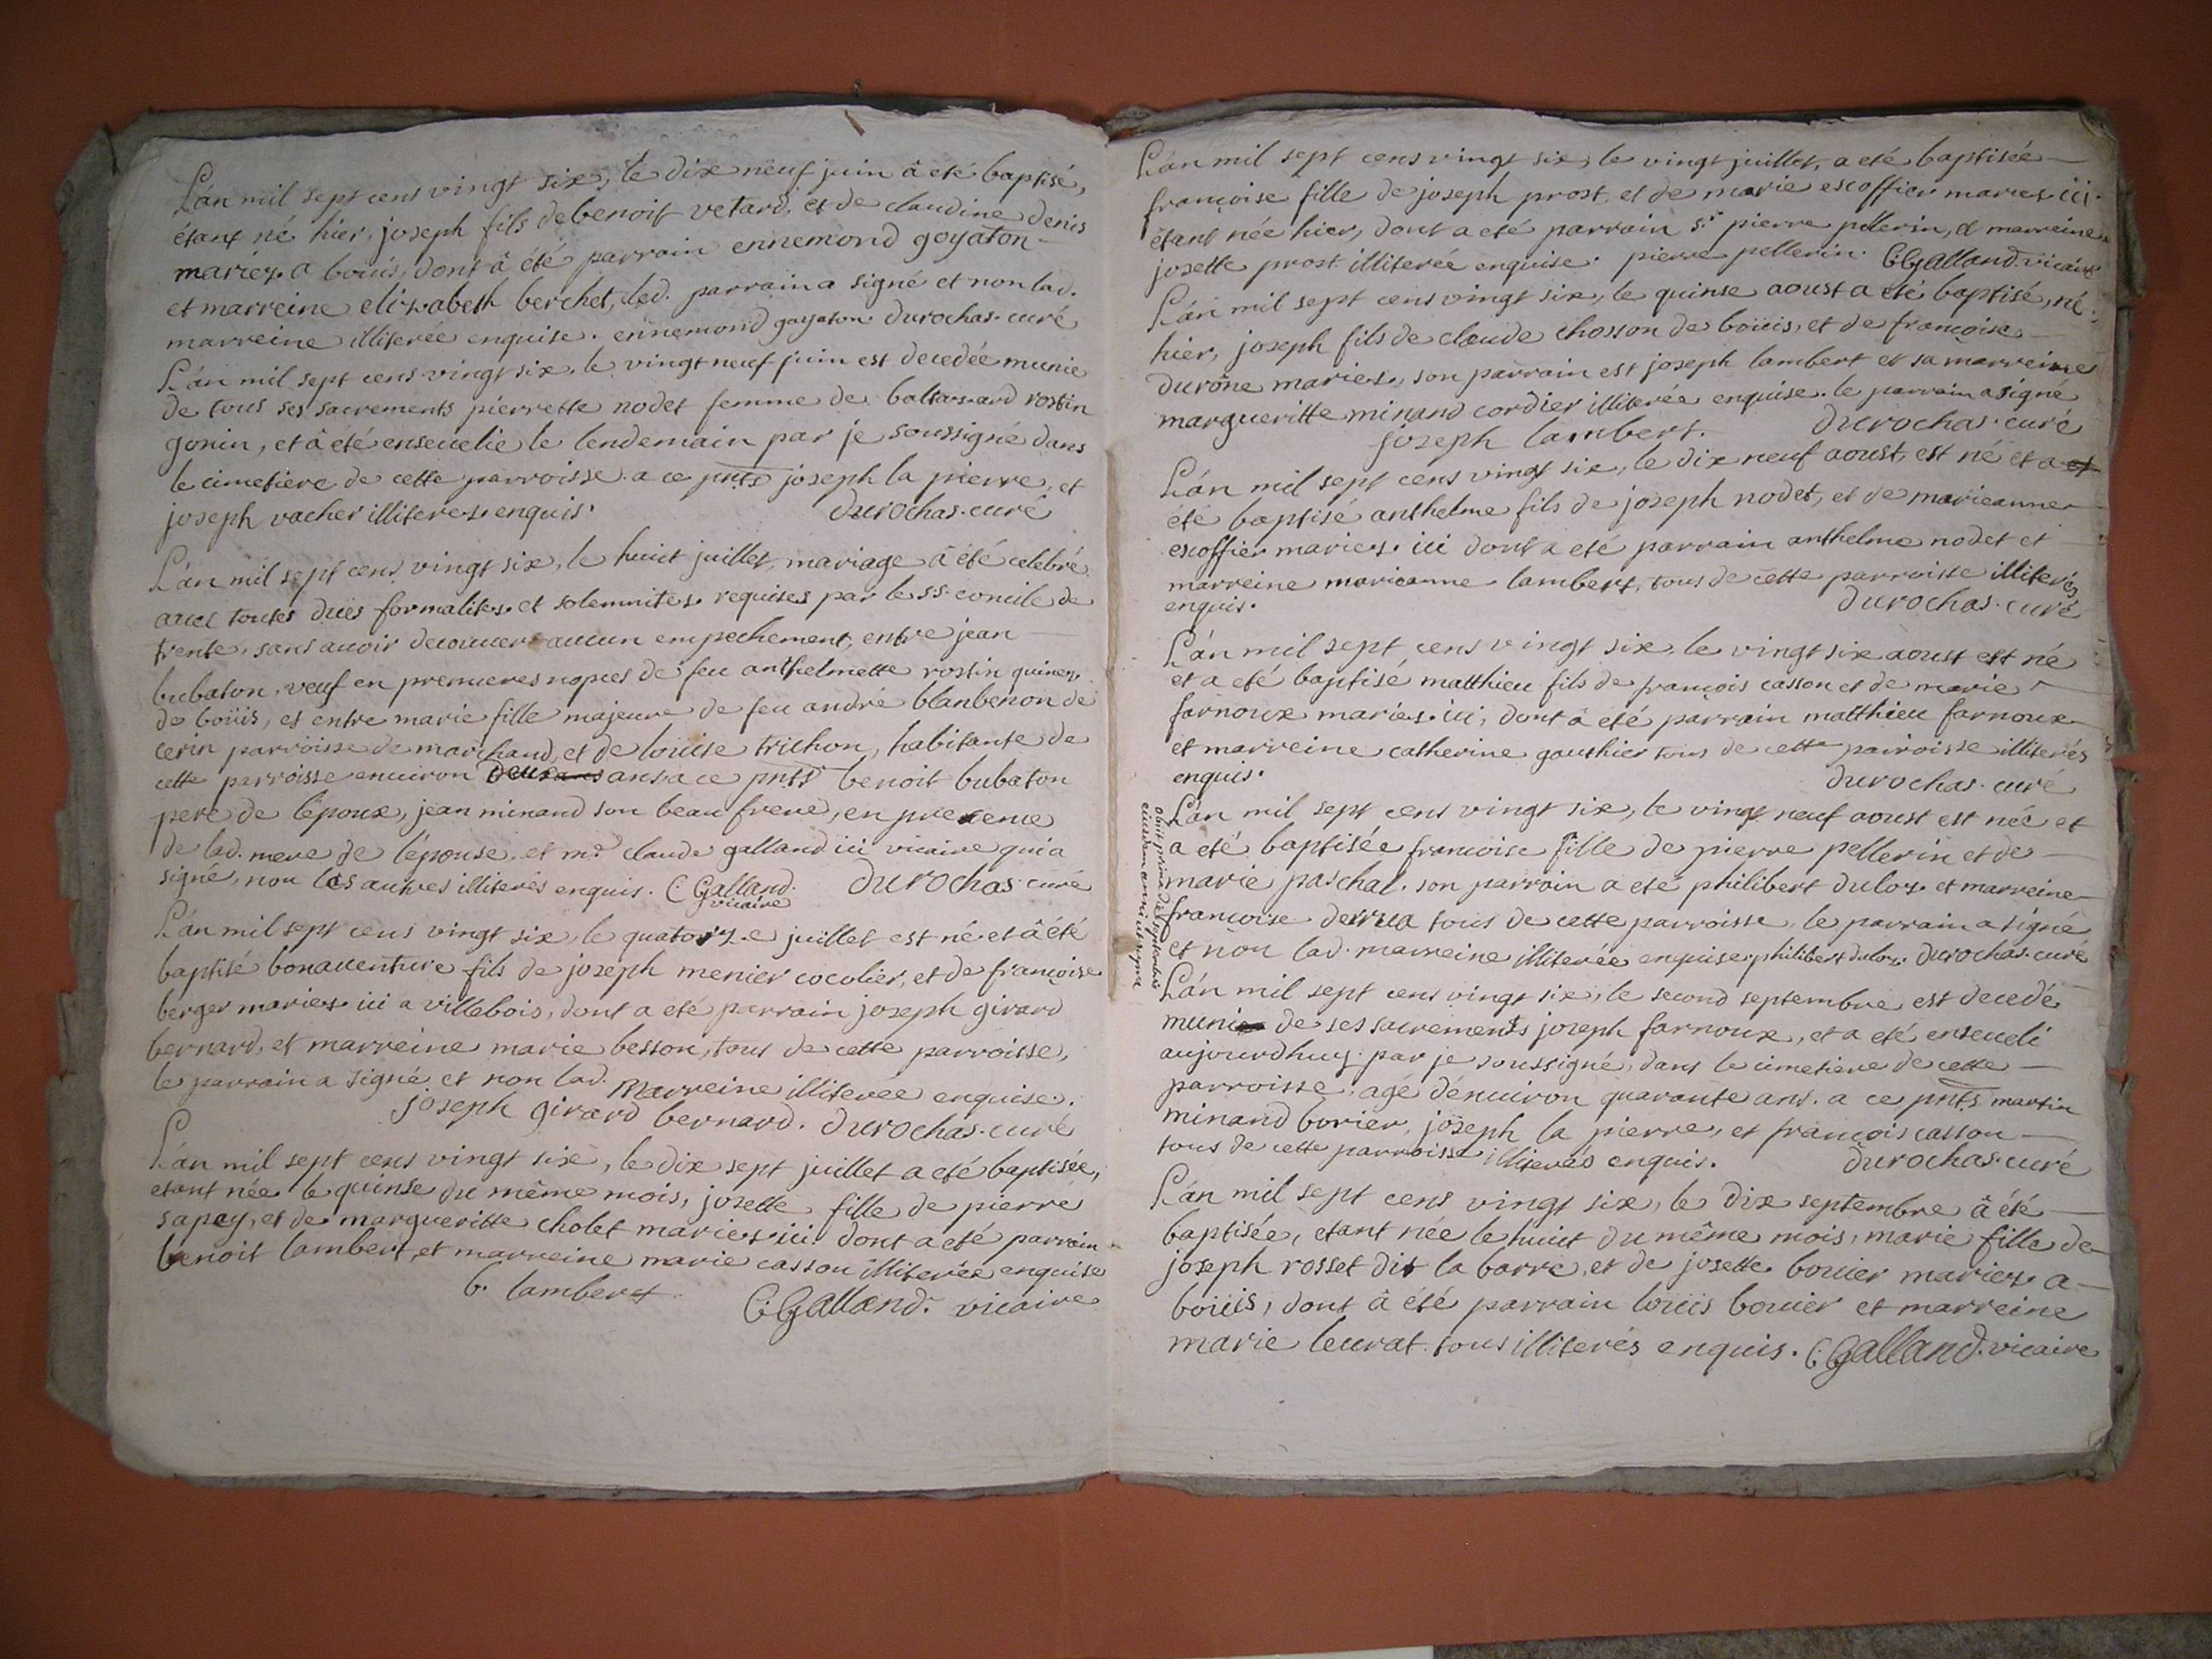 L'án mil sept cens vingt six, le dix neuf juin â eté baptisé,
étant né hier, joseph fils de benoit vetard, et de claudine denis
mariez a boüis, dont â été parrain ennemond goyaton
et marreine elizabeth berchet, led. parrain a signé et non lad.
marreine illiterée enquise. ennemond goyaton. durochas. curé
L'án mil sept cens vingt six, le vingt neuf juin est decedée munie
de tous ses sacrements pierrette nodet femme de baltazard rostin
gonin, et â été enseuelie le lendemain par je soussigné dans
le cimetiere de cette parroisse. a ce pnts joseph la pierre, et
joseph vacher illiterez enquis. durochas. curé
L'án mil sept cens vingt six, le huict juillet, mariage â été celebré
auec toutes dües formalitez et solemnitez requises par le ss. concile de
trente, sans auoir decouuer aucun empechement, entre jean
bubaton, veuf en premieres nopces de feu anthelmette rostin quinez
de boüis, et entre marie fille majeure de feu andré blanbenon de
cerin parroisse de marchand, et de loüise trichon, habitante de
cette parroisse enuiron deux ans ans a ce pnts benoit bubaton
pere de l'époux, jean minand son beau frere, en presence
de lad. mere de l'épouse, et mr. claude galland ici vicaire qui a
signé, non les autres illiterés enquis. C. Galland. vicaire durochas. curé
L'án mil sept cens vingt six, le quatorze juillet est né et â été
baptisé bonauenture fils de joseph menier cocolier, et de françoise
berger mariez ici a villebois, dont a eté parrain joseph girard
bernard, et marreine marie besson, tous de cette parroisse,
le parrain a signé et non lad. marreine illiterée enquise.
joseph girard bernard. durochas. curé
L'án mil sept cens vingt six, le dix sept juillet a eté baptisée,
etant née le quinse du même mois, josette fille de pierre
sapey, et de margueritte cholet mariez ici dont a eté parrain
benoit lambert, et marreine marie casson illiterée enquise
b. lambert. C. Galland. vicaire
L'án mil sept cens vingt six, le vingt juillet, a eté baptisée
françoise fille de joseph prost, et de marie escoffier mariez ici.
étant née hier, dont a eté parrain sr. pierre pellerin, et marreine
josette prost illiterée enquise. pierre pellerin. C. Galland. vicaire
L'án mil sept cens vingt six, le quinse aoust a été baptisé, né
hier, joseph fils de claude chosson de boüis, et de françoise
durone mariez, son parrain est joseph lambert et sa marreine
margueritte minand cordier illiterée enquise. le parrain a signé
joseph lambert. durochas. curé
L'án mil sept cens vingt six, le dix neuf aoust, est né et a et
été baptisé anthelme fils de joseph nodet, et de marieanne
escoffier mariez ici dont a eté parrain anthelme nodet et
marreine marieanne lambert, tous de cette parroisse illiterés
enquis. durochas. curé
L'án mil sept cens vingt six, le vingt six aoust est né
et a eté baptisé matthieu fils de françois casson et de marie
farnoux mariez ici, dont a eté parrain matthieu farnoux
et marreine catherine gauthier tous de cette parroisse illiterés
enquis. durochas. curé
obiit prima die septembris
eiusdem anni ut supra
L'án mil sept cens vingt six, le vingt neuf aoust est née et
a eté baptisée francoise fille de pierre pellerin et de
marie paschal. son parrain a eté philibert duloz et marreine
francoise derrua tous de cette parroisse, le parrain a signé
et non lad. marreine illiterée enquise. philibert duloz. durochas. curé
L'án mil sept cens vingt six, le second septembre est decedé
muni de ses sacrements joseph farnoux, et a eté enseueli
aujourdhuy par je soussigné, dans le cimetiere de cette
parroisse, agé d'enuiron quarante ans. a ce pnts martin
minand borier, joseph la pierre, et françois casson
tous de cette parroisse illiterés enquis. durochas. curé
L'án mil sept cens vingt six, le dix septembre â été
baptisée, etant née le huict du même mois, marie fille de
joseph rosset dit la barre, et de josette bouier mariez a
boüis, dont â été parrain loüis bouier et marreine
marie leurat. tous illiterés enquis. C. Galland. vicaire